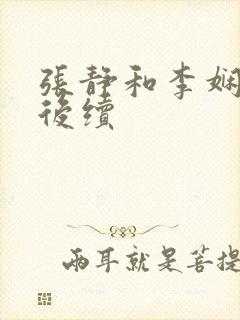 張靜和李娴
後續
兩耳就是菩提